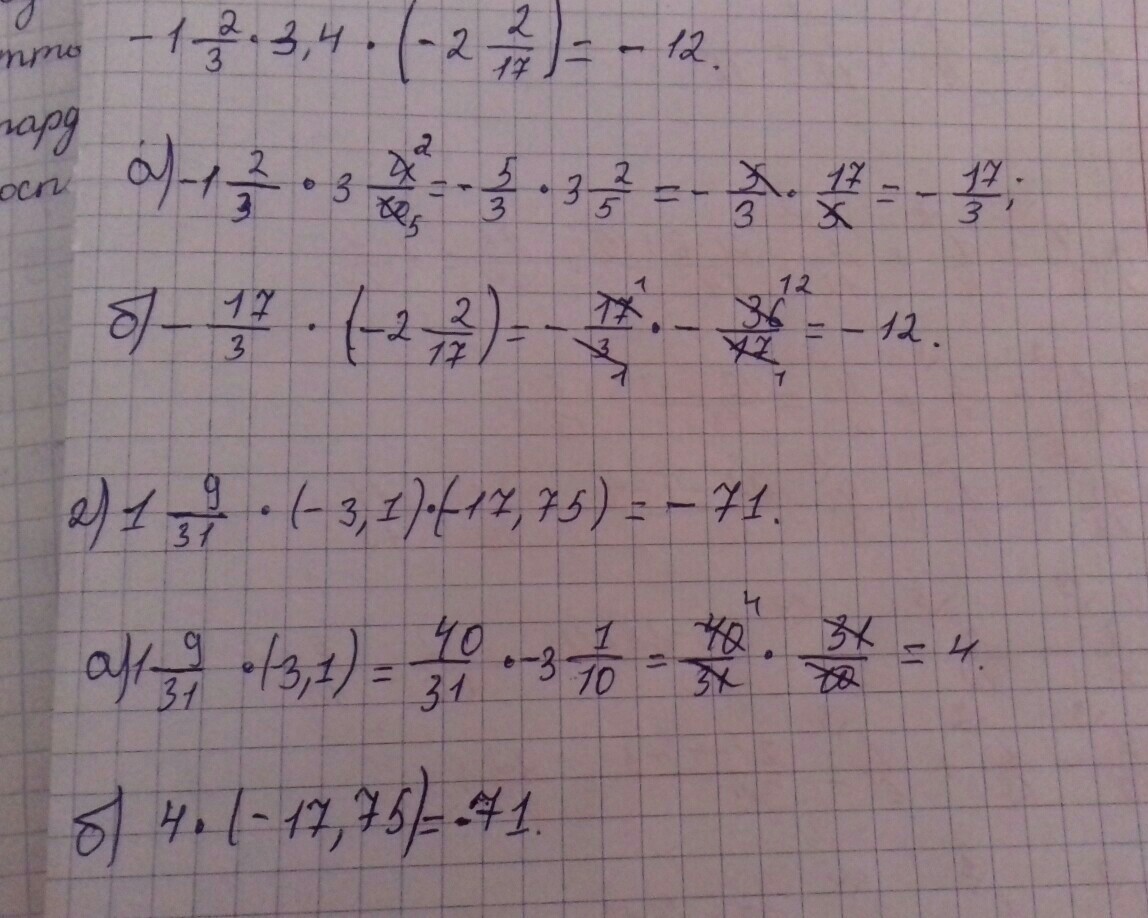 тто
пард
ост
-1 2/3 · 3,4 · (-2 2/17) = - 12.
а) -1 2/3 · 3 4/10 = - 5/3 · 3 2/5 = - 5/3 · 17/5 = - 17/3;
б) - 17/3 · (-2 2/17) = - 17/3 · - 36/17 = - 12.
г) 1 9/31 · (-3,1)·(-17,75) = - 71.
а) 1 9/31 · (-3,1) = 40/31 · -3 1/10 = 40/31 · 31/10 = 4.
б) 4 · (-17,75) = -71.